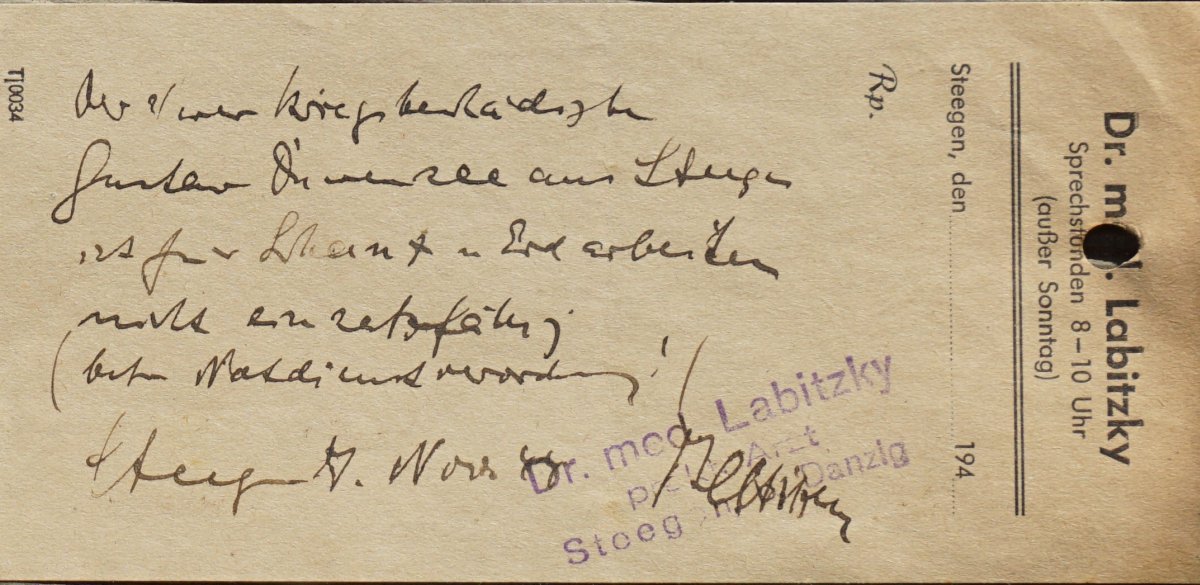 Dr. med. Labitzky
Sprechstunden 8–10 Uhr
(außer Sonntag)
Steegen, den 194
Rp.
Der Kriegsbeschädigte
Gustav aus Steegen
ist für Schanz u Erdarbeiten
nicht einsatzfähig
(betr. Notdienstverordnung!)
Steegen Nov.
Dr. med. Labitzky
prakt. Arzt
Danzig
Tj0034